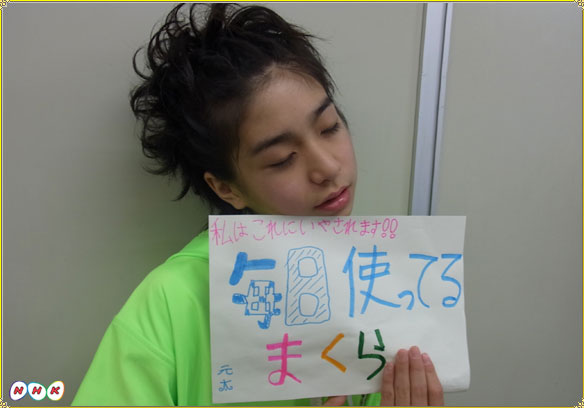 私はこれにいやされます!!
毎日使ってる
まくら
元太
NHK